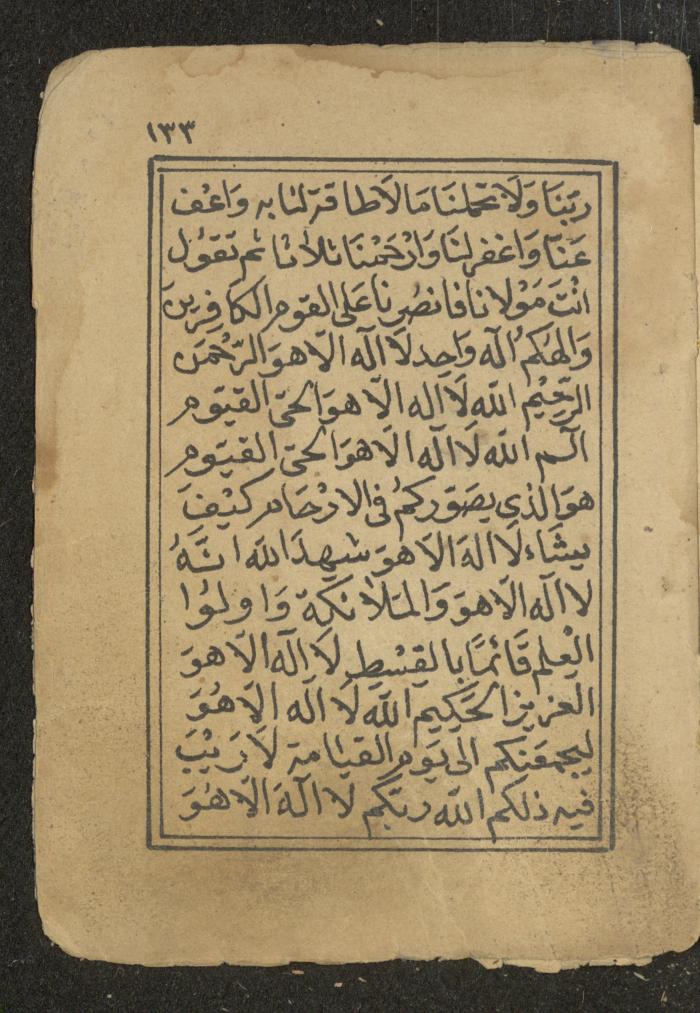 ١٣٣
ربّنا وَلَا تحملنَا مَا لَا طاقة لنا به وَاعْف
عَنّا وَاغفر لنَا وَارْحَمْنَا ثلاثا ثم تقول
انْتَ مَوْلانا فانصُرنا عَلى القوم الكافِرينَ
وَالهكم اله وَاحِد لَا اله الّا هوَ الرّحْمَن
الرّحيْم الله لَا اله الّا هوَ الحيّ القيّوم
الٓم الله لَا اله الّا هوَ الحيّ القيّوم
هوَ الذي يصَوّركمُ في الارْحَام كيْفَ
يشَاء لَا الهَ الّا هوَ شهِدَ الله انّهُ
لا اله الّا هوَ وَالمَلائكة وَاولوُا
العِلم قَائمًا بالقسْطِ لَا اله الّا هوَ
العَزيز الحَكِيم الله لَا اله الّا هُوَ
ليجمعَنكم الى يَوم القيَامة لَا رَيْبَ
فيه ذلكم الله ربّكم لا الهَ الّا هُوَ